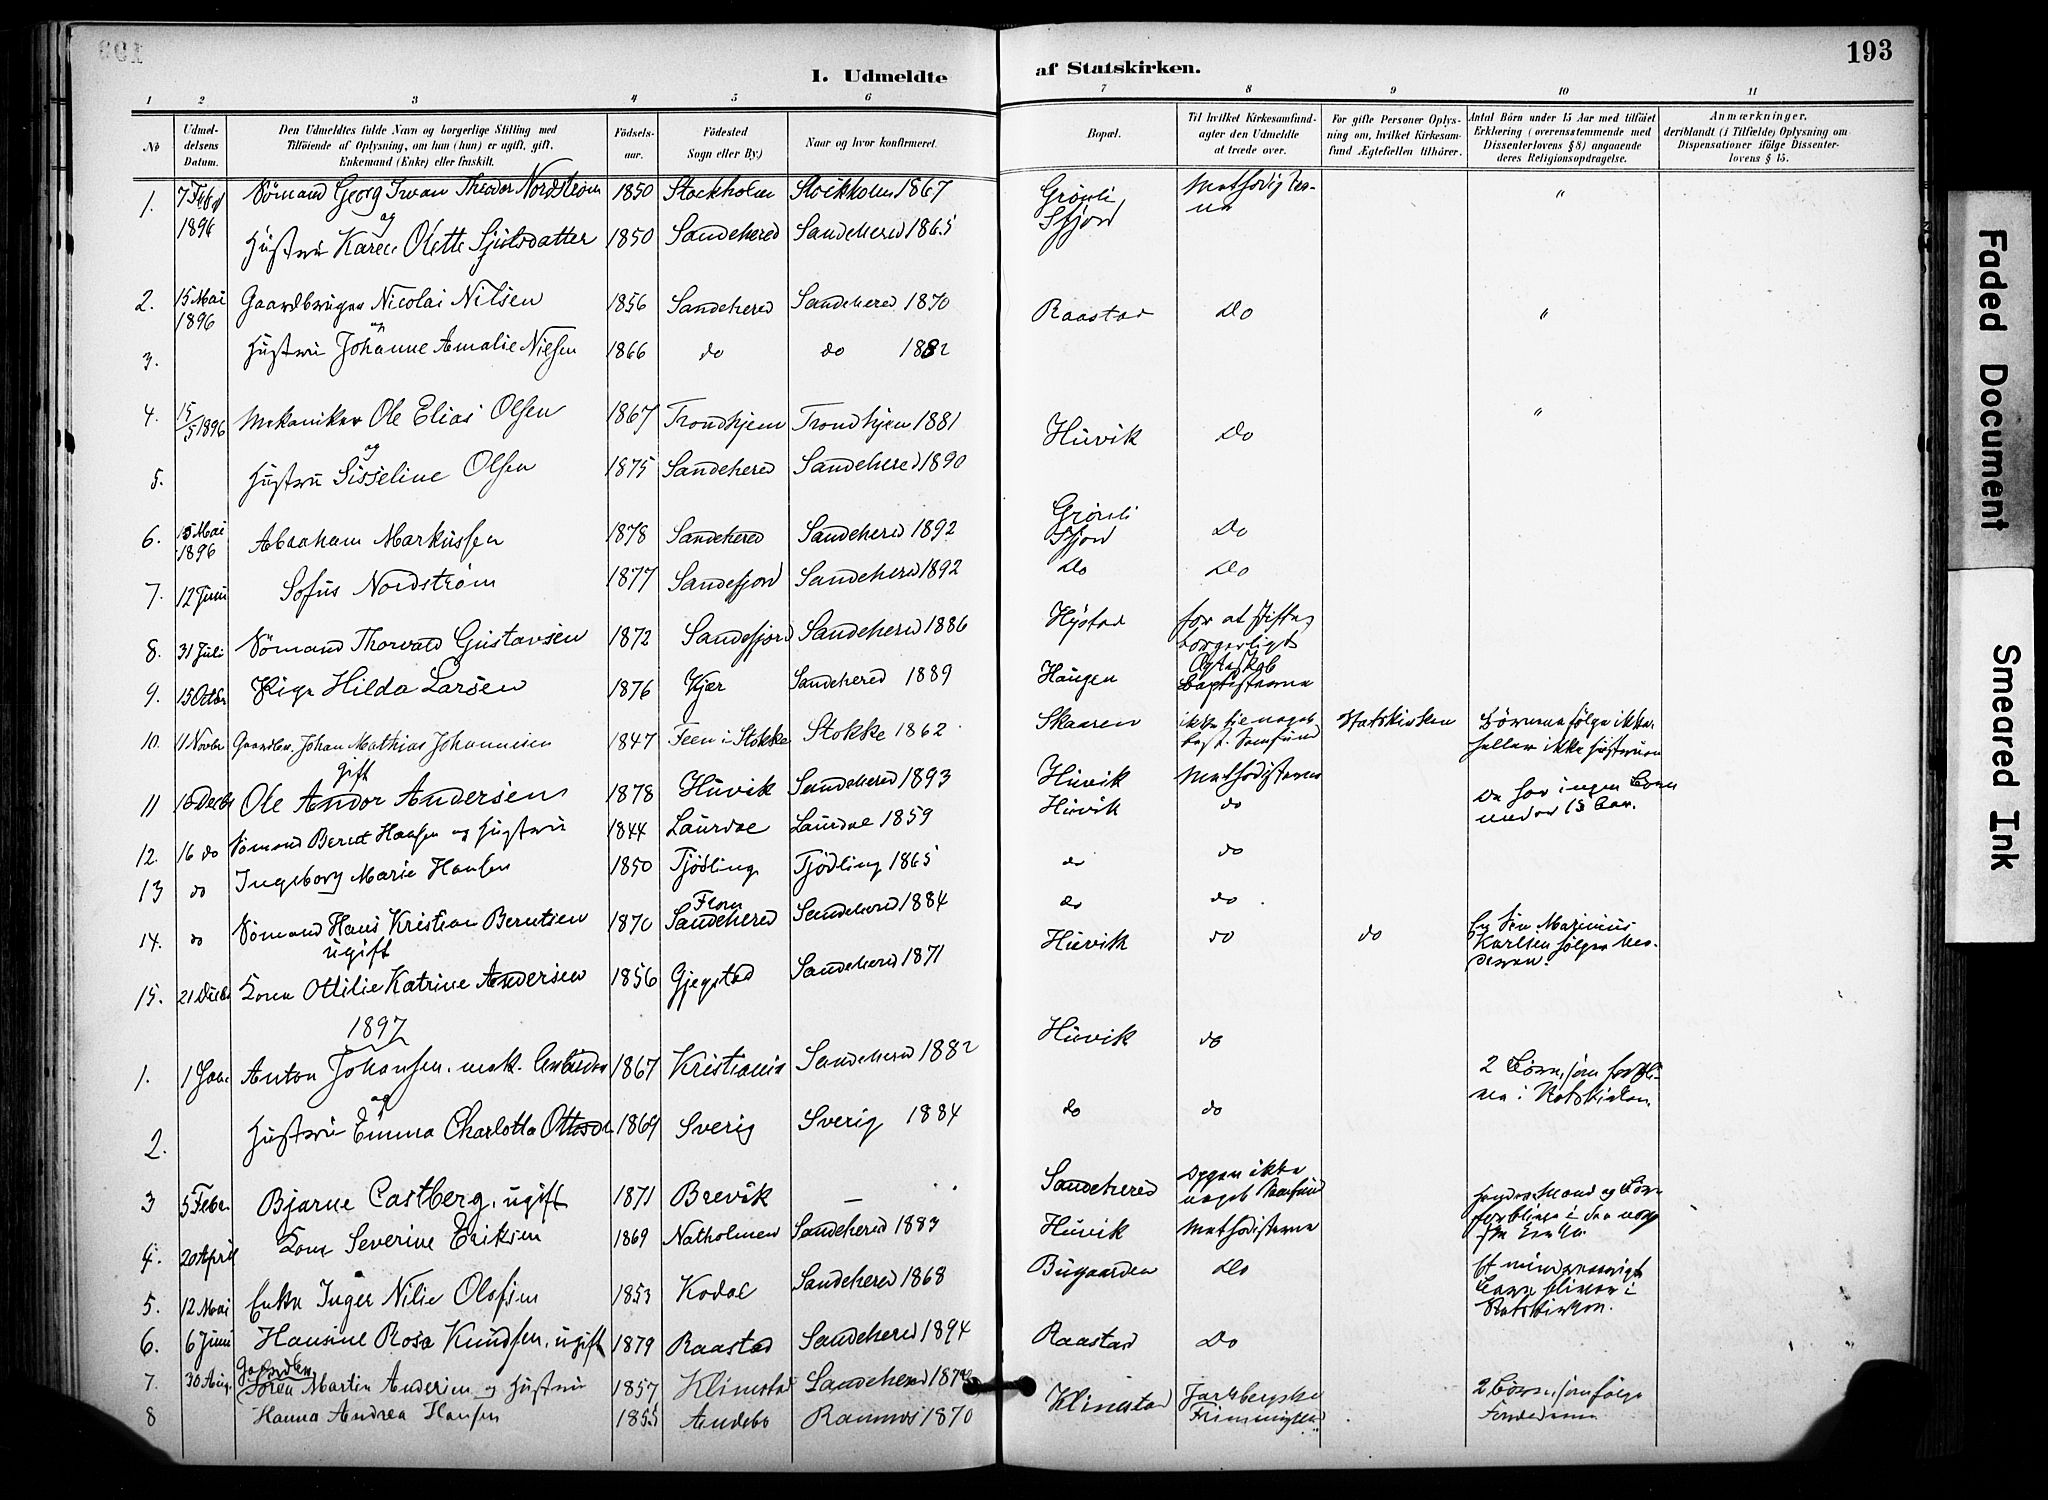 193
I. Udmeldte af Statskirken.
1 2 3 4 5 6 7 8 9 10 11
No
Udmel-
delsens
Datum.
Den Udmeldtes fulde Navn og borgerlige Stilling med
Tilføiende af Oplysning, om hun (hun) er ugift, gift,
Enkemand (Enke) eller fraskilt.
Födsels-
aar.
Födested
Sogn eller By.)
Naar og hvor konfirmeret.
Bopæl.
Til hvilket Kirkesamfund-
agter den Udmeldte
at træde over.
For gifte Personer Oplys-
ning om, hvilket Kirkesam-
fund Ægtefællen tilhörer.
Antal Börn under 15 Aar med tilföiet
Erklæring (overensstemmende med
Dissenterlovens § 8) angaaende
deres Religionsopdragelse.
Anmærkninger,
deriblandt (i Tilfælde) Oplysning om
Dispensationer ifölge Dissenter-
lovens § 15.
1. 7 Feb 1896 Sömand Georg Iwan Theodor Nordström 1850 Stockholm Stockholm 1867 Grönli, Sfjord "
og
Hustru Karen Olette Sjulsdatter 1850 Sandeherred Sandeherred 1865
2. 15 Mai 1896 Gaardbruger Nicolai Nilsen 1856 Sandeherred Sandeherred 1870 Raastad Do "
og
3. Hustru Johanne Amalie Nilsen 1866 do do 1882
4. 15/5 1896 Mekaniker Ole Elias Olsen 1867 Trondhjem Trondhjem 1881 Huvik Do "
og
5. Hustru Sisseline Olsen 1875 Sandeherred Sandehered 1890
6. 15 Mai 1896 Abraham Markussen 1878 Sandehered Sandehered 1892 Grönli Sfjord Do
7. 12 Juni Sofus Nordström 1877 Sandefjord Sandehered 1892 Do Do
8. 31 Juli Sömand Thorvald Gustavsen 1872 Sandefjord Sandehered 1886 Hystad for at stifte borgerligt Ægteskab
9. 15 Octbr Pige Hilda Larsen 1876 Kjær Sandehered 1889 Haugen Baptisterne
10. 11 Novbr Gaardbr. Johan Mathias Johannesen 1847 Feen i Stokke Stokke 1862 Skaaren Statskirken
gift
11 16 Decbr Ole Andor Andersen 1878 Huvik Sandehered 1893 Huvik Methodisterne
12. 16 do Sömand Berut Hansen og Hustru 1844 Laurdal Laurdal 1859 Huvik do De har ingen Börn under 15 Aar.
13 do Ingeborg Marie Hansen 1850 Tjödling Tjödling 1865 do do
14. do Sömand Hans Kristian Berntsen 1870 Flom Sandehered Sandehered 1884 do do
ugift
15. 21 Decbr Kone Ottilie Katrine Andersen 1856 Gjegstad Sandehered 1871 Huvik do do En Sön Marinius Karlsen fölger Moderen.
1897
1. 1 Jan. Anton Johansen, mek. Arbeider 1867 Kristiania Sandehered 1882 Huvik do 2 Börn, som forblive i Statskirken.
og
2. Hustru Emma Charlotta 1869 Sverig Sverig 1884 do do
3 5 Febr. Bjarne Castberg, ugift 1871 Brevik — Sandehered
4. 20 April Kone Severine Eriksen 1869 Natholmen Sandehered 1883 Huvik Methodisterne
5. 12 Mai Enke Inger Nilie Olafsen 1853 Kodal Sandehered 1868 Bugaarden Do Et mindreaarigt Barn bliver i Statskirken.
6. 6 Juni Hansine Rosa Knudsen, ugift 1879 Raastad Sandehered 1894 Raastad Do
7. 30 Aug. Gaardbr. Sören Martin Andersen og Hustru 1857 Klinestad Sandehered Klinestad Jarlsbergske Frimenighed 2 Börn, som fölge Forældrene
8 Hanna Andrea Hansen 1855 Andebo Ramnes 1870
Faded Document
Smeared Ink